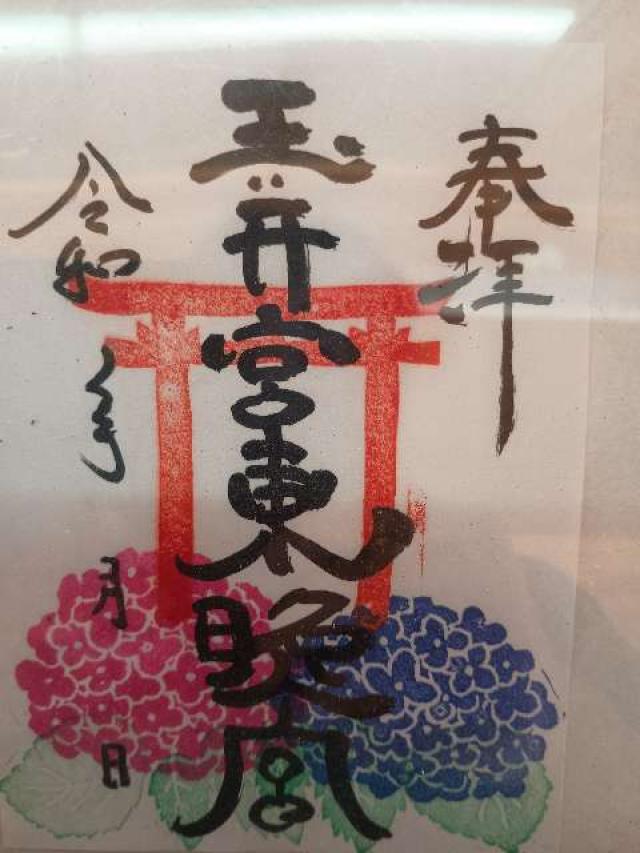 奉拝
玉井宮東照宮
令和 年 月 日